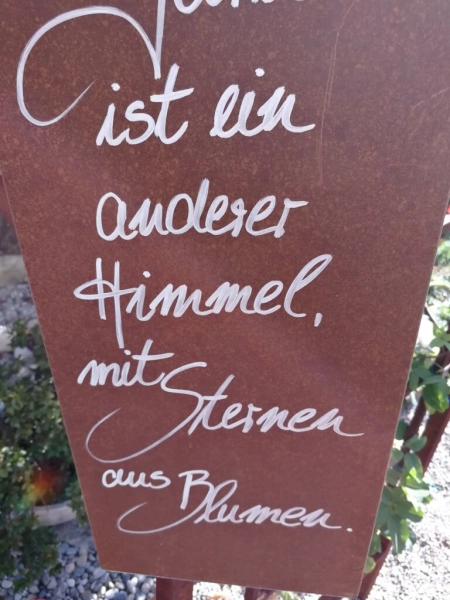 ist ein
anderer
Himmel,
mit Sternen
aus Blumen.